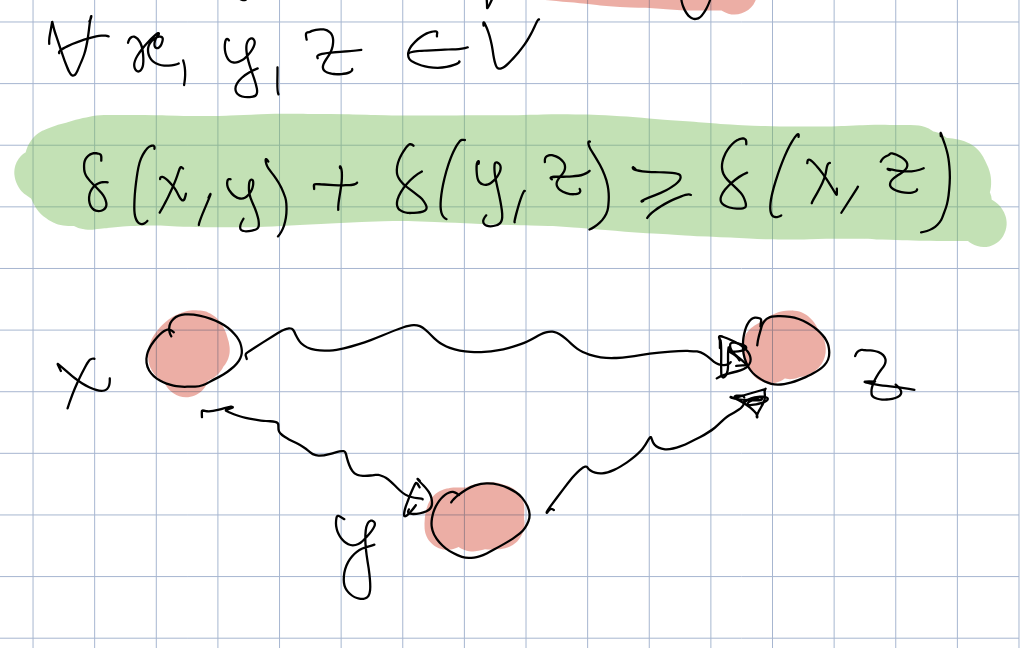 ∀ x, y, z ∈ V
δ(x, y) + δ(y, z) ≥ δ(x, z)
x
z
y